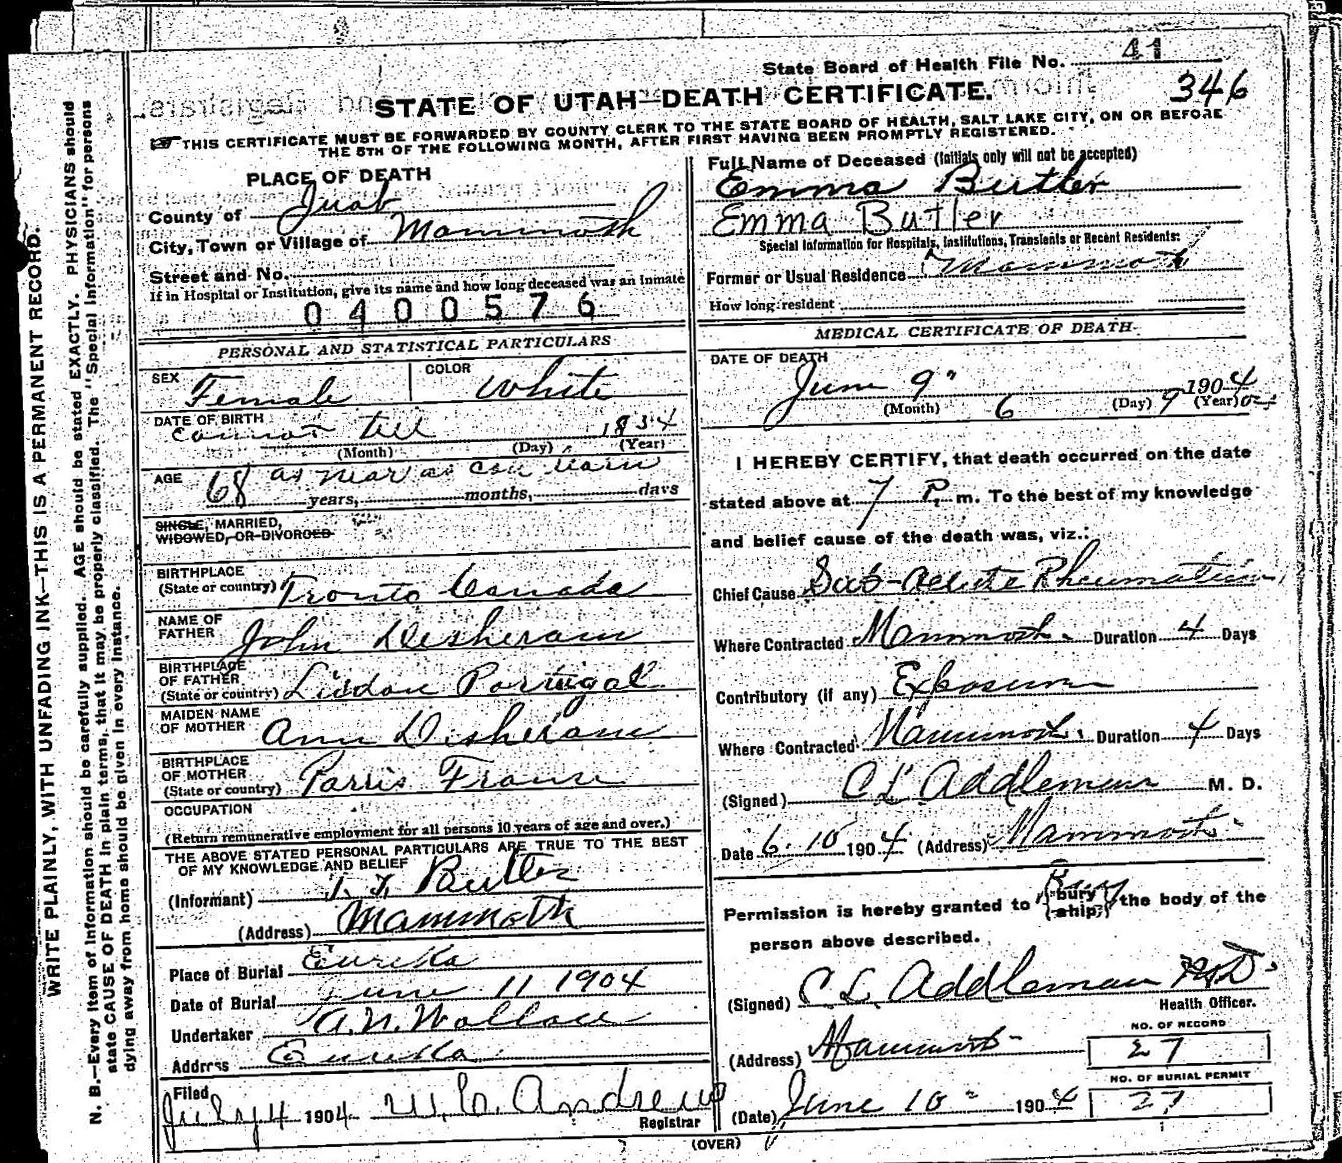 State Board of Health File No. 41
346
STATE OF UTAH—DEATH CERTIFICATE.
THIS CERTIFICATE MUST BE FORWARDED BY COUNTY CLERK TO THE STATE BOARD OF HEALTH, SALT LAKE CITY, ON OR BEFORE
THE 5TH OF THE FOLLOWING MONTH, AFTER FIRST HAVING BEEN PROMPTLY REGISTERED.
WRITE PLAINLY, WITH UNFADING INK—THIS IS A PERMANENT RECORD.
N. B.—Every item of information should be carefully supplied. AGE should be stated EXACTLY. PHYSICIANS should
state CAUSE OF DEATH in plain terms, that it may be properly classified. The "Special Information" for persons
dying away from home should be given in every instance.
PLACE OF DEATH
County of Juab
City, Town or Village of Mammoth
Street and No.
If in Hospital or Institution, give its name and how long deceased was an inmate
0400576
PERSONAL AND STATISTICAL PARTICULARS
SEX Female COLOR White
DATE OF BIRTH cannot tell 1834
(Month) (Day) (Year)
AGE 68 as near as can learn
years, months, days
SINGLE, MARRIED,
WIDOWED, OR DIVORCED
BIRTHPLACE
(State or country) Tronto Canada
NAME OF
FATHER John Desheram
BIRTHPLACE
OF FATHER
(State or country) Lisdon Portugal
MAIDEN NAME
OF MOTHER Ann Disheram
BIRTHPLACE
OF MOTHER
(State or country) Parris France
OCCUPATION
(Return remunerative employment for all persons 10 years of age and over.)
THE ABOVE STATED PERSONAL PARTICULARS ARE TRUE TO THE BEST
OF MY KNOWLEDGE AND BELIEF
(Informant) Butler
(Address) Mammoth
Place of Burial Eureka
Date of Burial June 11 1904
Undertaker A.N. Wallace
Address Eureka
Filed
July 4 1904 W. C. Andrews
Registrar
Full Name of Deceased (Initials only will not be accepted)
Emma Butler
Emma Butler
Special Information for Hospitals, Institutions, Transients or Recent Residents:
Former or Usual Residence Mammoth
How long resident
MEDICAL CERTIFICATE OF DEATH
DATE OF DEATH
June 9" 1904
(Month) 6 (Day) 9 (Year) 04
I HEREBY CERTIFY, that death occurred on the date
stated above at 7 P. m. To the best of my knowledge
and belief cause of the death was, viz.:
Chief Cause Sub-Acute Rheumatism
Where Contracted Mammoth Duration 4 Days
Contributory (if any) Exposure
Where Contracted Mammoth Duration 4 Days
(Signed) C L Addleman M. D.
Date 6. 10 1904 (Address) Mammoth
Permission is hereby granted to Bury bury ship the body of the
person above described.
(Signed) C L Addleman M D
Health Officer.
(Address) Mammoth
NO. OF RECORD
27
NO. OF BURIAL PERMIT
27
(Date) June 10 1904
(OVER)